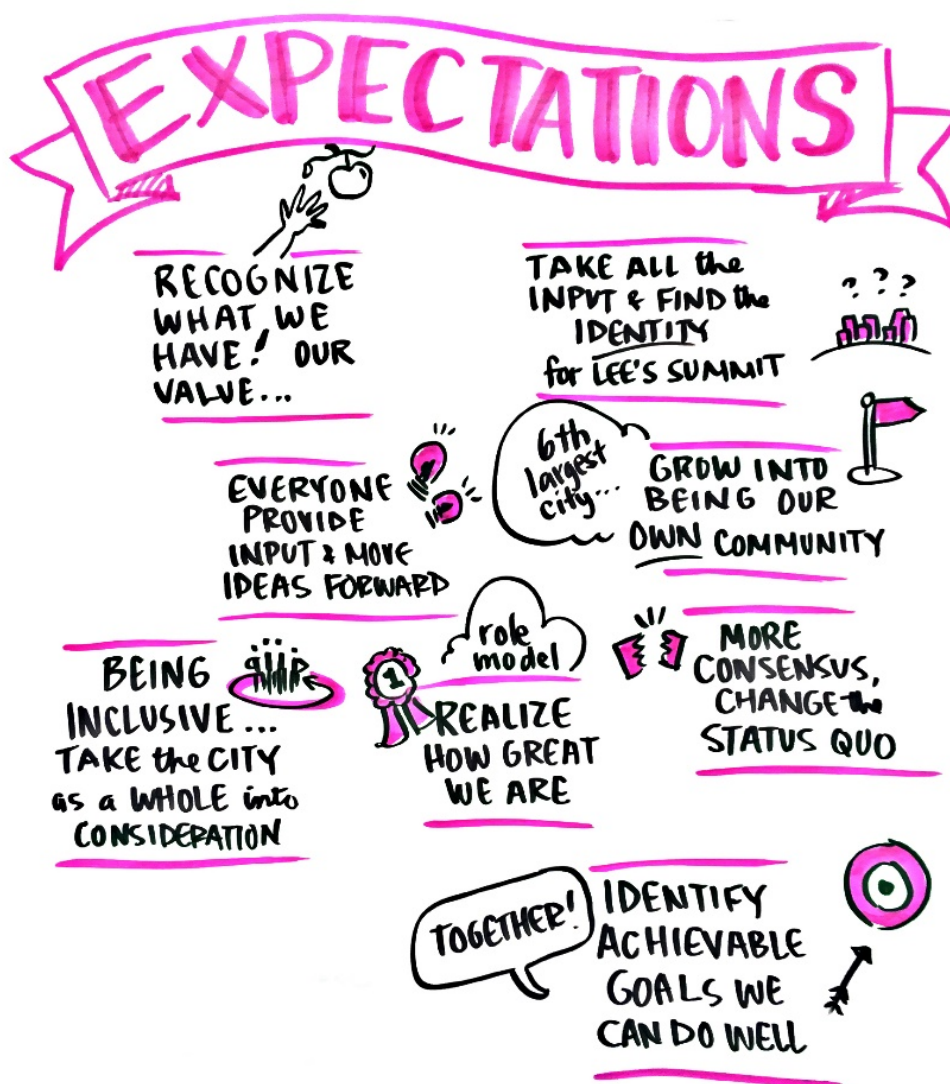 EXPECTATIONS
RECOGNIZE
WHAT WE
HAVE! OUR
VALUE...
TAKE ALL the
INPUT & FIND the
IDENTITY
for LEE'S SUMMIT
? ? ?
EVERYONE
PROVIDE
INPUT & MOVE
IDEAS FORWARD
6th
largest
city...
GROW INTO
BEING OUR
OWN COMMUNITY
BEING
INCLUSIVE...
TAKE the CITY
as a WHOLE into
CONSIDERATION
role
model
1
REALIZE
HOW GREAT
WE ARE
MORE
CONSENSUS,
CHANGE the
STATUS QUO
TOGETHER!
IDENTIFY
ACHIEVABLE
GOALS WE
CAN DO WELL